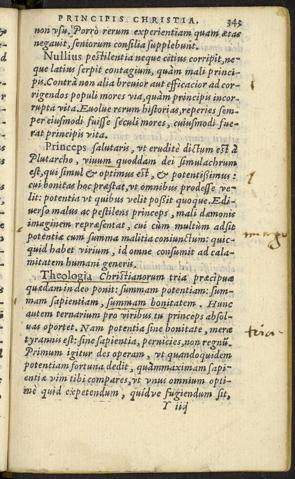 PRINCIPIS CHRISTIA. 345
non vsu. Porrò rerum experientiam quam ætas
negauit, seniorum consilia supplebunt.
Nullius pestilentia neque citius corripit, ne-
que latius serpit contagium, quàm mali princi-
pis. Contrà non alia breuior aut efficacior ad cor-
rigendos populi mores via, quàm principis incor-
rupta vita. Euolue rerum historias, reperies sem-
per eiusmodi fuisse seculi mores, cuiusmodi fue-
rat principis vita.
Princeps salutaris, vt eruditè dictum est à
Plutarcho, viuum quoddam dei simulachrum
est, qui simul & optimus est, & potentißimus:
cui bonitas hoc præstat, vt omnibus prodesse ve-
lit: potentia vt quibus velit poßit quoque. E di-
uerso malus ac pestilens princeps, mali dæmonis
imaginem repræsentat, cui cum multùm adsit
potentiæ cum summa malitia coniunctum: quic-
quid habet virium, id omne consumit ad cala-
mitatem humani generis.
imago
Theologia Christianorum tria præcipua
quædam in deo ponit: summam potentiam: sum-
mam sapientiam, summam bonitatem. Hunc
autem ternarium pro viribus tu princeps absol-
uas oportet. Nam potentia sine bonitate, mera
tria.
tyrannis est: sine sapientia, pernicies, non regnū.
Primum igitur des operam, vt quandoquidem
potentiam fortuna dedit, quàm maximam sapi-
entiæ vim tibi compares, vt vnus omnium opti-
mè quid expetendum, quidve fugiendum sit,
Y iiij